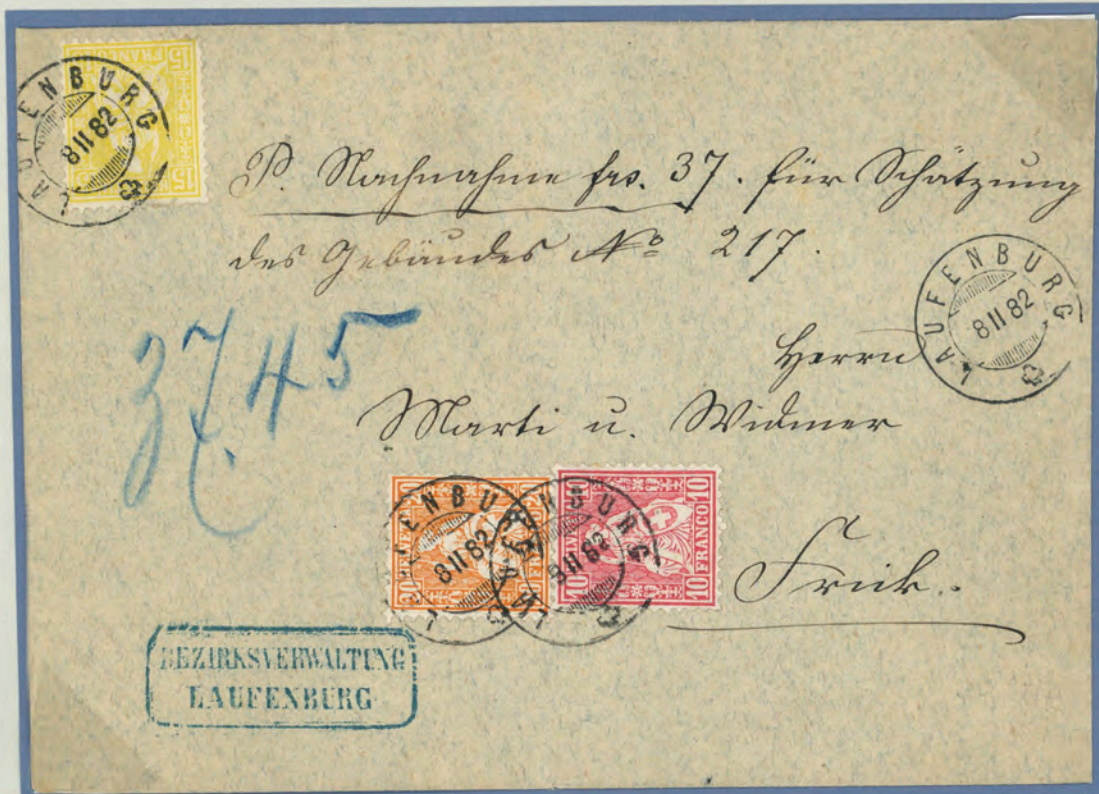 15 FRANCO 15
LAUFENBURG
8 II 82
P. Nachnahme frs. 37. für Schätzung
des Gebäudes No 217.
LAUFENBURG
8 II 82
37.45
Herrn
Marti u. Widmer
LAUFENBURG
8 II 82
LAUFENBURG
8 II 82
10 FRANCO 10
Frick.
BEZIRKSVERWALTUNG
LAUFENBURG